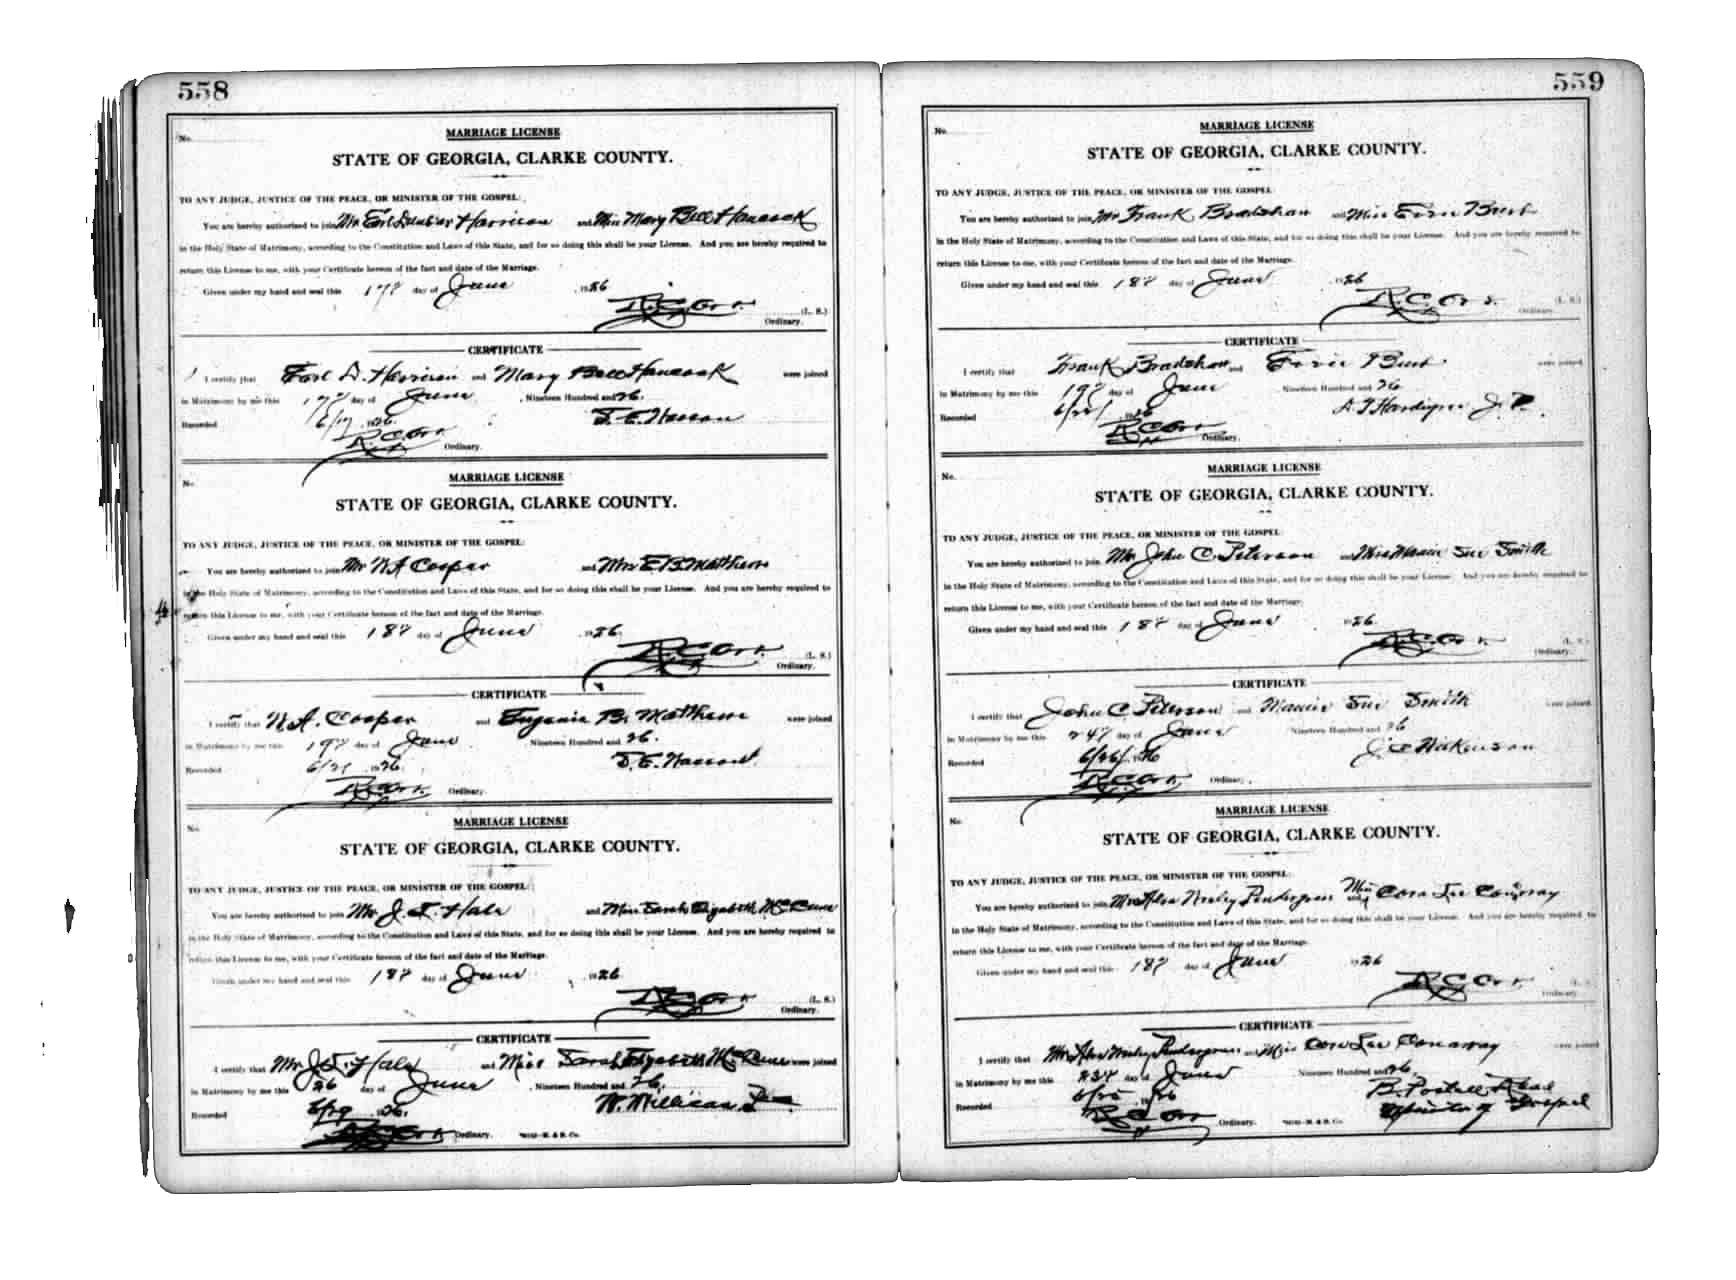 558
No.
MARRIAGE LICENSE
STATE OF GEORGIA, CLARKE COUNTY.
TO ANY JUDGE, JUSTICE OF THE PEACE, OR MINISTER OF THE GOSPEL:
You are hereby authorized to join Mr. Earl Dunbar Harrison and Miss Mary Bell Hancock
in the Holy State of Matrimony, according to the Constitution and Laws of this State, and for so doing this shall be your License. And you are hereby required to
return this License to me, with your Certificate hereon of the fact and date of the Marriage.
Given under my hand and seal this 17" day of June 1926
R. C. Orr. (L. S.)
Ordinary.
CERTIFICATE
I certify that Earl D. Harrison and Mary Bell Hancock were joined
in Matrimony by me this 17" day of June, Nineteen Hundred and 26.
Recorded 6/19 1926.
R C Orr Ordinary.
No.
MARRIAGE LICENSE
STATE OF GEORGIA, CLARKE COUNTY.
TO ANY JUDGE, JUSTICE OF THE PEACE, OR MINISTER OF THE GOSPEL:
You are hereby authorized to join Mr W A Cooper and Mrs E B Matthews
in the Holy State of Matrimony, according to the Constitution and Laws of this State, and for so doing this shall be your License. And you are hereby required to
return this License to me, with your Certificate hereon of the fact and date of the Marriage.
Given under my hand and seal this 18" day of June 1926.
R. C. Orr. (L. S.)
Ordinary.
CERTIFICATE
I certify that W. A. Cooper and Eugenia B. Matthews were joined
in Matrimony by me this 19" day of June Nineteen Hundred and 26.
Recorded 6/21 1926.
R. C. Orr. Ordinary.
No.
MARRIAGE LICENSE
STATE OF GEORGIA, CLARKE COUNTY.
TO ANY JUDGE, JUSTICE OF THE PEACE, OR MINISTER OF THE GOSPEL:
You are hereby authorized to join Mr. J. T. Hale and Miss Sarah Elizabeth McCune
in the Holy State of Matrimony, according to the Constitution and Laws of this State, and for so doing this shall be your License. And you are hereby required to
return this License to me, with your Certificate hereon of the fact and date of the Marriage.
Given under my hand and seal this 18" day of June 1926
R C Orr (L. S.)
Ordinary.
CERTIFICATE
I certify that Mr. J. T. Hale and Miss Sarah Elizabeth McCune were joined
in Matrimony by me this 26 day of June, Nineteen Hundred and 26.
Recorded 6/29 1926. W. Millican
R C Orr Ordinary.
559
No.
MARRIAGE LICENSE
STATE OF GEORGIA, CLARKE COUNTY.
TO ANY JUDGE, JUSTICE OF THE PEACE, OR MINISTER OF THE GOSPEL:
You are hereby authorized to join Mr Frank Bradshaw and Miss
in the Holy State of Matrimony, according to the Constitution and Laws of this State, and for so doing this shall be your License. And you are hereby required to
return this License to me, with your Certificate hereon of the fact and date of the Marriage.
Given under my hand and seal this 18" day of June 1926
R. C. Orr. (L. S.)
Ordinary.
CERTIFICATE
I certify that Frank Bradshaw and were joined
in Matrimony by me this 19" day of June Nineteen Hundred and 26
Recorded 6/22/ 1926 J. P.
R C Orr Ordinary.
No.
MARRIAGE LICENSE
STATE OF GEORGIA, CLARKE COUNTY.
TO ANY JUDGE, JUSTICE OF THE PEACE, OR MINISTER OF THE GOSPEL:
You are hereby authorized to join Mr John C. Peterson and Miss Mamie Sue Smith
in the Holy State of Matrimony, according to the Constitution and Laws of this State, and for so doing this shall be your License. And you are hereby required to
return this License to me, with your Certificate hereon of the fact and date of the Marriage.
Given under my hand and seal this 18" day of June 1926.
R. C. Orr. (L. S.)
Ordinary.
CERTIFICATE
I certify that John C Peterson and Mamie Sue Smith were joined
in Matrimony by me this 24" day of June Nineteen Hundred and 26
Recorded 6/26/ 1926
R C Orr. Ordinary.
No.
MARRIAGE LICENSE
STATE OF GEORGIA, CLARKE COUNTY.
TO ANY JUDGE, JUSTICE OF THE PEACE, OR MINISTER OF THE GOSPEL:
You are hereby authorized to join Mr Alva Wesley Pendergrass and Miss Cora Lee Conaway
in the Holy State of Matrimony, according to the Constitution and Laws of this State, and for so doing this shall be your License. And you are hereby required to
return this License to me, with your Certificate hereon of the fact and date of the Marriage.
Given under my hand and seal this 18" day of June 1926
R C Orr (L. S.)
Ordinary.
CERTIFICATE
I certify that Mr Alva Wesley Pendergrass and Miss Cora Lee Conaway were joined
in Matrimony by me this 23" day of June Nineteen Hundred and 26.
Recorded 6/25 1926
R C Orr Ordinary. Minister of Gospel